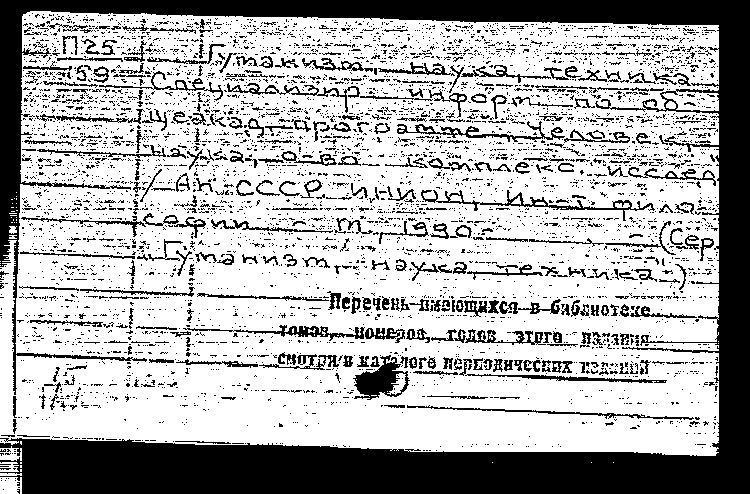 П25
159
Гуманизм, наука, техника.
Специализир. информ. по об-
щеакад. программе „Человек,
наука, о-во: комплекс. исслед."
/ АН СССР. ИНИОН, Ин-т фило-
софии. - М., 1990- . - (Сер.
„Гуманизм, наука, техника")
Перечень имеющихся в библиотеке
томов, номеров, годов этого издания
смотри в каталоге периодических изданий